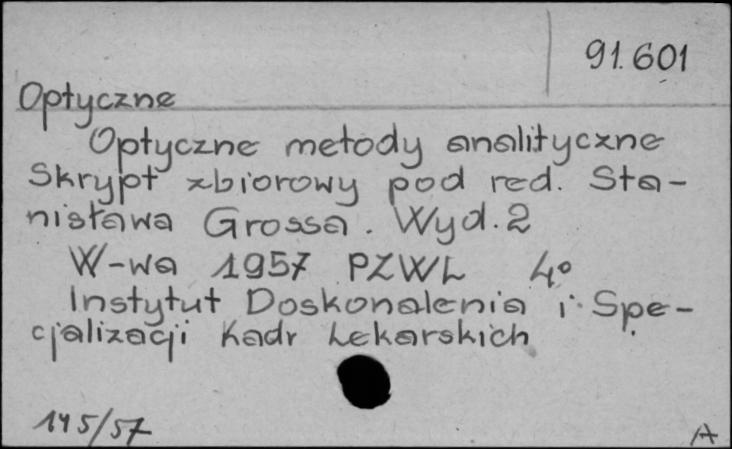 91.601
Optyczne
Optyczne metody analityczne
Skrypt zbiorowy pod red. Sta-
nisława Grossa. Wyd. 2
W-wa 1957 PZWL 4°
Instytut Doskonalenia i Spe-
cjalizacji Kadr Lekarskich
145/57
A